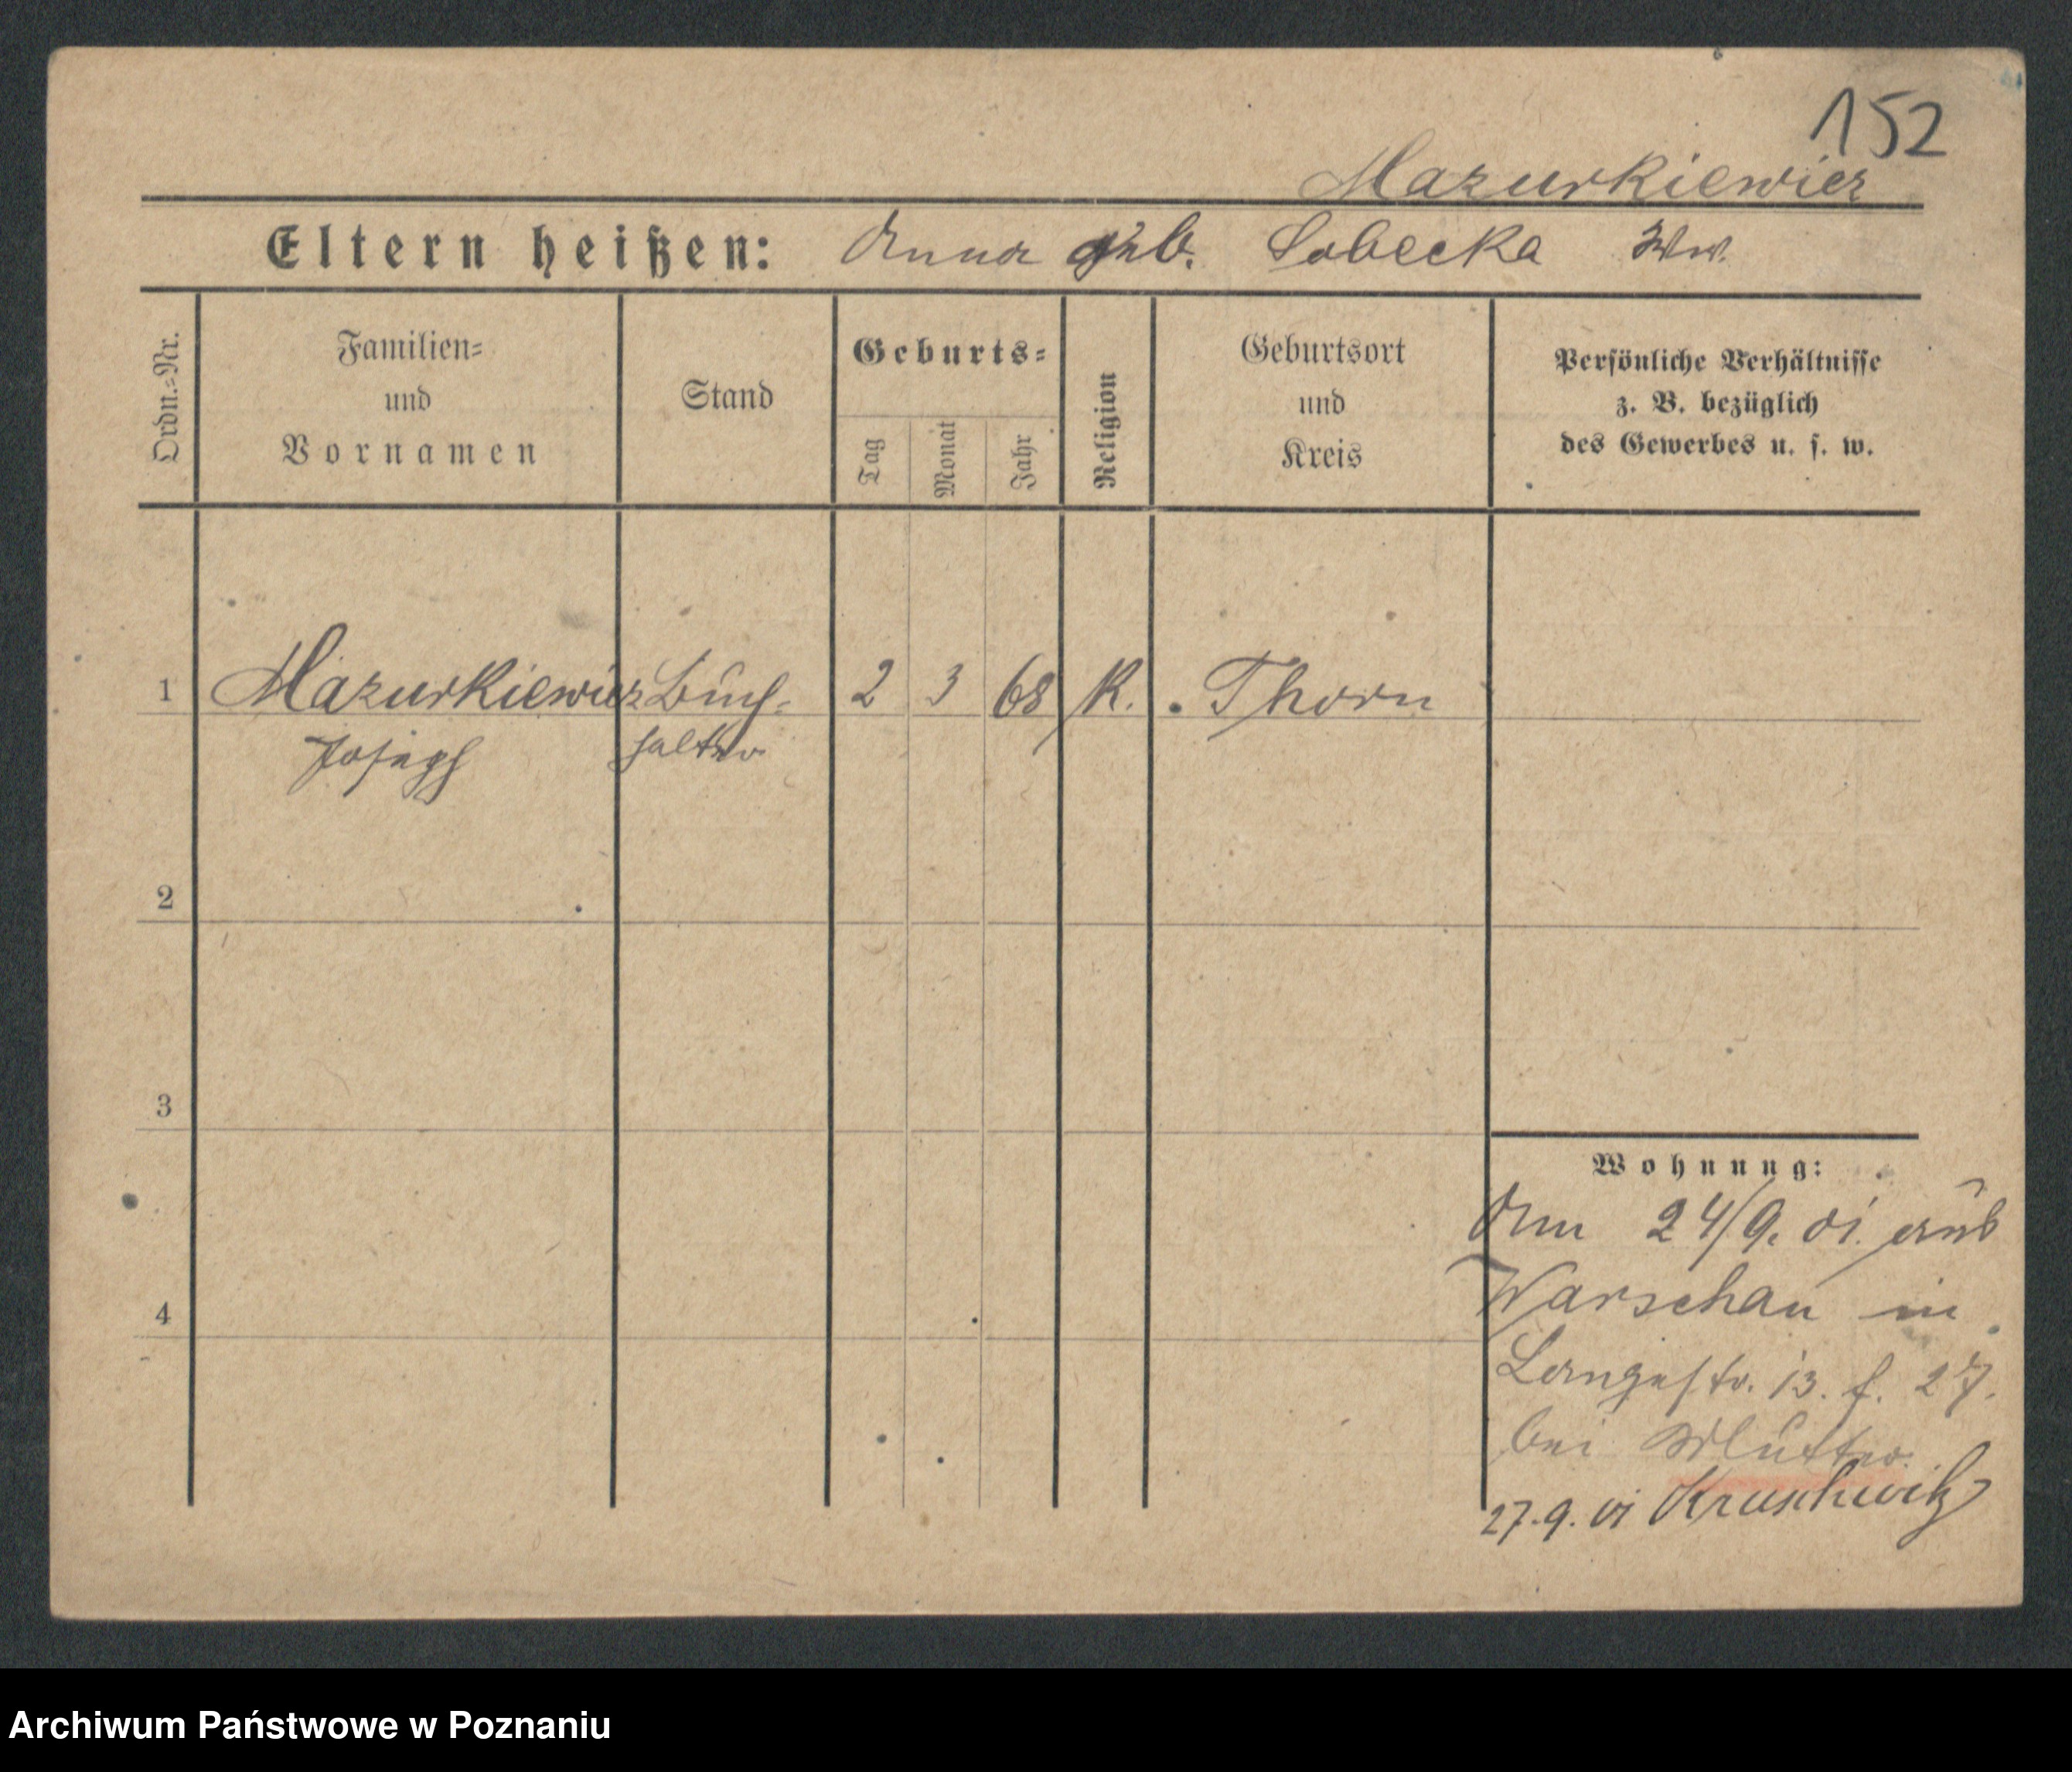 152
Mazurkiewicz
Eltern heißen: Anna geb. Sobecka Ww.
Ordn.=Nr.
Familien=
und
Vornamen
Stand
Geburts=
Tag
Monat
Jahr
Religion
Geburtsort
und
Kreis
Persönliche Verhältnisse
z. B. bezüglich
des Gewerbes u. s. w.
1 Mazurkiewicz Buch- 2 3 68 K. Thorn
Joseph halter
2
3
4
Wohnung:
Am 24/9. 01. aus
Warschau in
Langestr. 13. f. 27.
bei Mutter.
27.9. 01 Kruschwitz
Archiwum Państwowe w Poznaniu